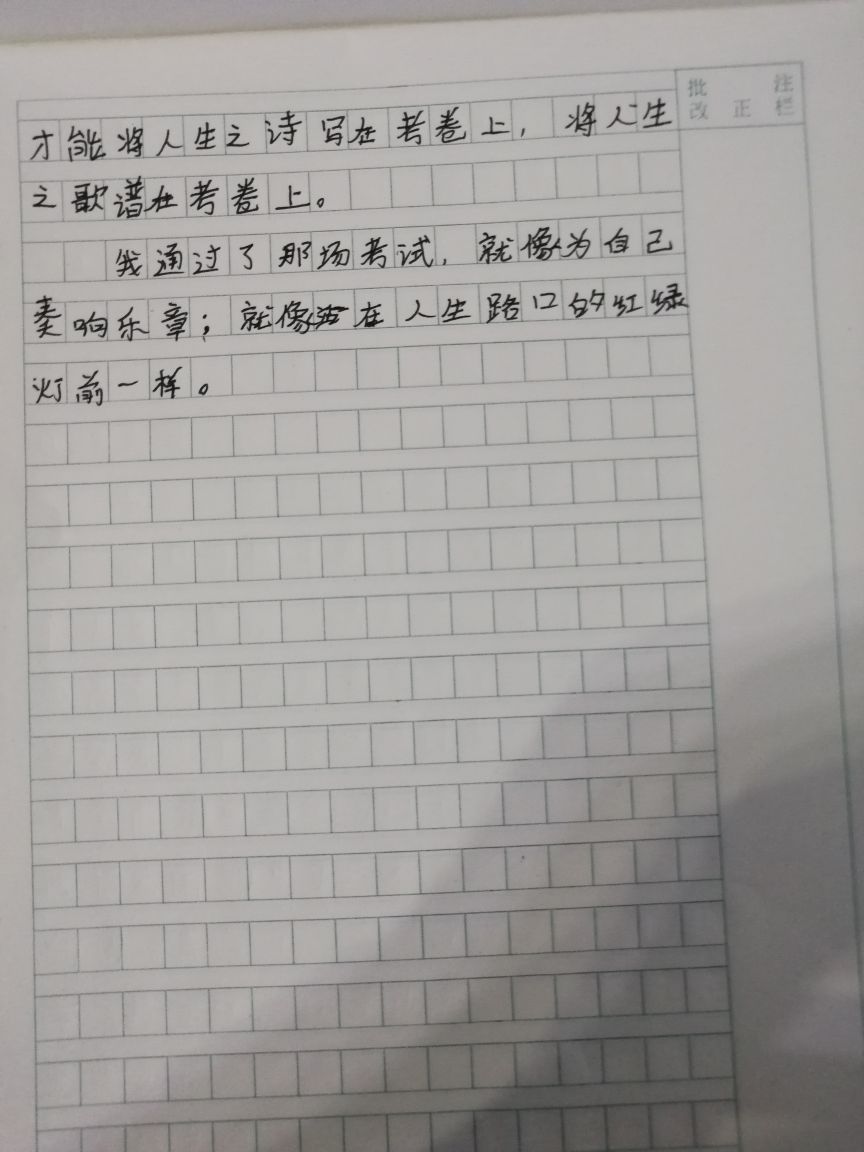 批注
改正栏
才能将人生之诗写在考卷上，将人生
之歌谱在考卷上。
我通过了那场考试，就像为自己
奏响乐章；就像在人生路口的红绿
灯前一样。